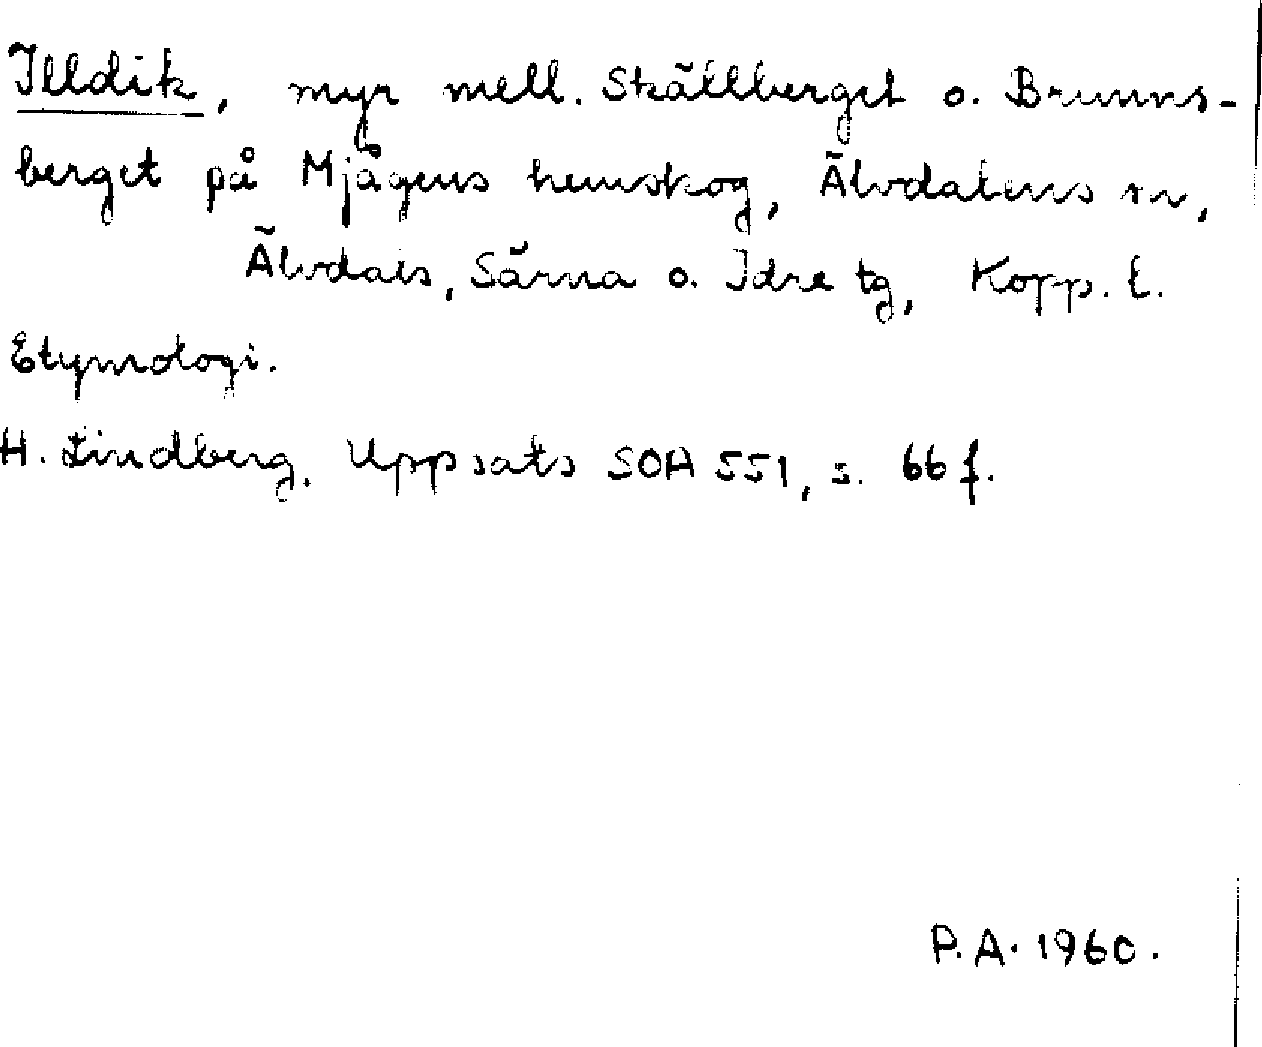 Illdik, myr mell. Skällberget o. Brunns-
berget på Mjågens hemskog, Älvdalens sn,
Älvdals, Särna o. Idre tg, Kopp. l.
Etymologi.
H. Lindberg, Uppsats SOA 551, s. 66 f.
P.A. 1960.